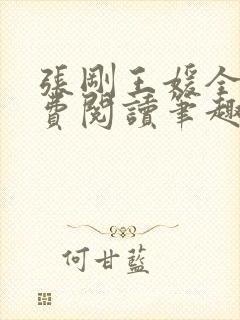 張剛王媛全
費閱讀筆趣
何甘藍